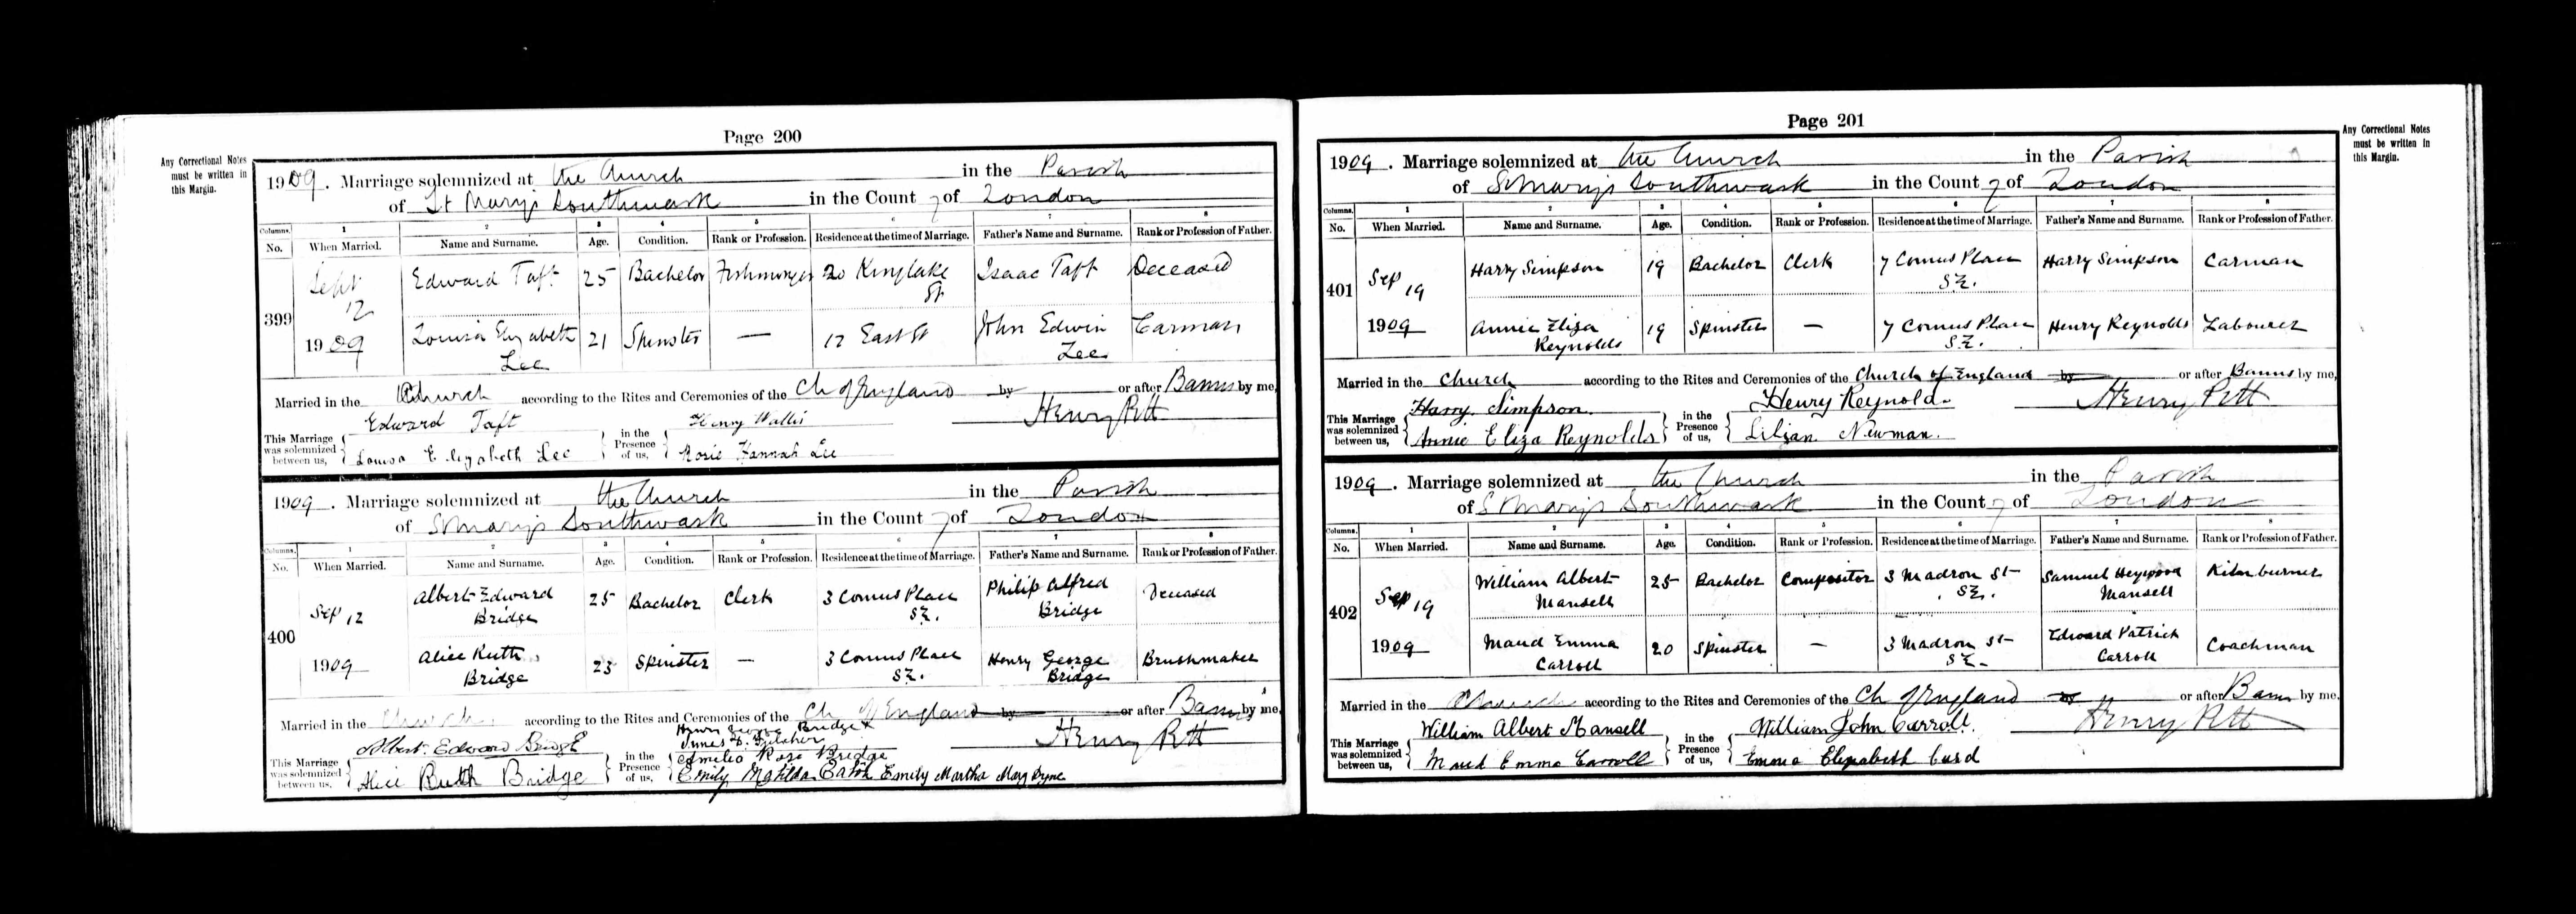 Page 200
Any Correctional Notes
must be written in
this Margin.
1909. Marriage solemnized at the Church in the Parish
of St Mary's Southwark in the County of London
Columns. 1 2 3 4 5 6 7 8
No. When Married. Name and Surname. Age. Condition. Rank or Profession. Residence at the time of Marriage. Father's Name and Surname. Rank or Profession of Father.
399 Sept 12 1909
Edward Taft 25 Bachelor Fishmonger 20 Kinglake St Isaac Taft Deceased
Louisa Elizabeth Lee 21 Spinster — 12 East St John Edwin Lee Carman
Married in the Church according to the Rites and Ceremonies of the Ch of England by or after Banns by me,
Henry Pitt
This Marriage was solemnized between us, Edward Taft
Louisa Elizabeth Lee
in the Presence of us, Henry Wallis
Rosie Hannah Lee
1909. Marriage solemnized at the Church in the Parish
of St Mary's Southwark in the County of London
Columns. 1 2 3 4 5 6 7 8
No. When Married. Name and Surname. Age. Condition. Rank or Profession. Residence at the time of Marriage. Father's Name and Surname. Rank or Profession of Father.
400 Sep 12 1909
Albert Edward Bridge 25 Bachelor Clerk 3 Comus Place S.E. Philip Alfred Bridge Deceased
Alice Ruth Bridge 23 Spinster — 3 Comus Place S.E. Henry George Bridge Brushmaker
Married in the Church according to the Rites and Ceremonies of the Ch of England by or after Banns by me,
Henry Pitt
This Marriage was solemnized between us, Albert Edward Bridge
Alice Ruth Bridge
in the Presence of us, Henry George Bridge
Rose Bridge
Emily Matilda Emily Martha Mary
Page 201
Any Correctional Notes
must be written in
this Margin.
1909. Marriage solemnized at the Church in the Parish
of St Mary's Southwark in the County of London
Columns. 1 2 3 4 5 6 7 8
No. When Married. Name and Surname. Age. Condition. Rank or Profession. Residence at the time of Marriage. Father's Name and Surname. Rank or Profession of Father.
401 Sep 19 1909
Harry Simpson 19 Bachelor Clerk 7 Comus Place S.E. Harry Simpson Carman
Annie Eliza Reynolds 19 Spinster — 7 Comus Place S.E. Henry Reynolds Labourer
Married in the Church according to the Rites and Ceremonies of the Church of England by or after Banns by me,
Henry Pitt
This Marriage was solemnized between us, Harry Simpson.
Annie Eliza Reynolds
in the Presence of us, Henry Reynolds
Lilian Newman.
1909. Marriage solemnized at the Church in the Parish
of St Mary's Southwark in the County of London
Columns. 1 2 3 4 5 6 7 8
No. When Married. Name and Surname. Age. Condition. Rank or Profession. Residence at the time of Marriage. Father's Name and Surname. Rank or Profession of Father.
402 Sep 19 1909
William Albert Mansell 25 Bachelor Compositor 3 Madron St S.E. Samuel Heywood Mansell Kilnburner
Maud Emma Carroll 20 Spinster — 3 Madron St S.E. Edward Patrick Carroll Coachman
Married in the Church according to the Rites and Ceremonies of the Ch of England by or after Banns by me,
Henry Pitt
This Marriage was solemnized between us, William Albert Mansell
Maud Emma Carroll
in the Presence of us, William John Carroll.
Emma Elizabeth Curd